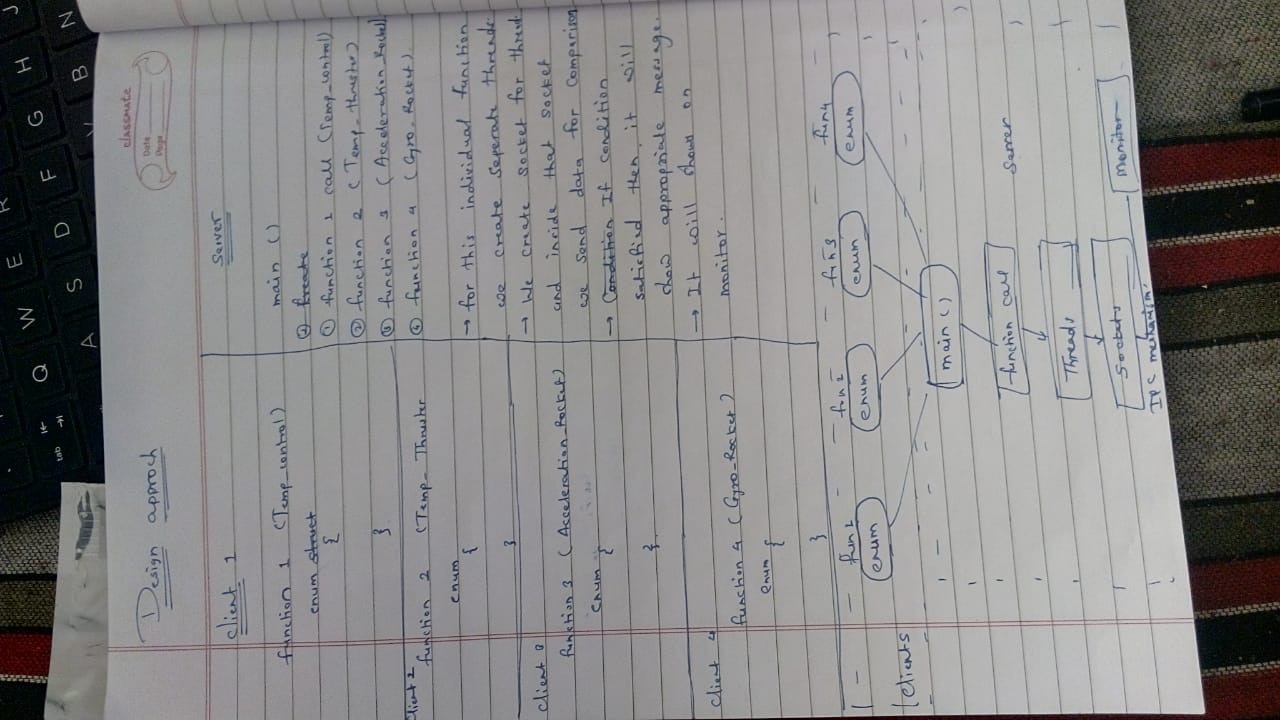 Q W E R
tab
A S D F G H J
V B N
classmate
Date
Page
Design approch
client 1
function 1 (Temp_control)
enum struct
{
}
Client 2
function 2 (Temp_ Thruster
enum
{
}
client 3
function 3 (Acceleration_Rocket)
enum {
}
client 4
function 4 (Gyro_Rocket)
enum {
}
Server
main ()
create
① function 1 call (Temp_control)
② function 2 (Temp_thruster)
③ function 3 (Acceleration_Rocket)
④ function 4 (Gyro_Rocket).
→ for this individual function
we create seperate threads.
→ We create socket for thread
and incide that socket
we send data for comparison
→ Condition If condition
satisfied then, it will
show appropriate message.
→ It will shows on
monitor.
fun1 fun2 fun3 fun4
enum enum enum enum
clients
main ()
function call
Server
Threads
Sockets
monitor
IPC mechanism